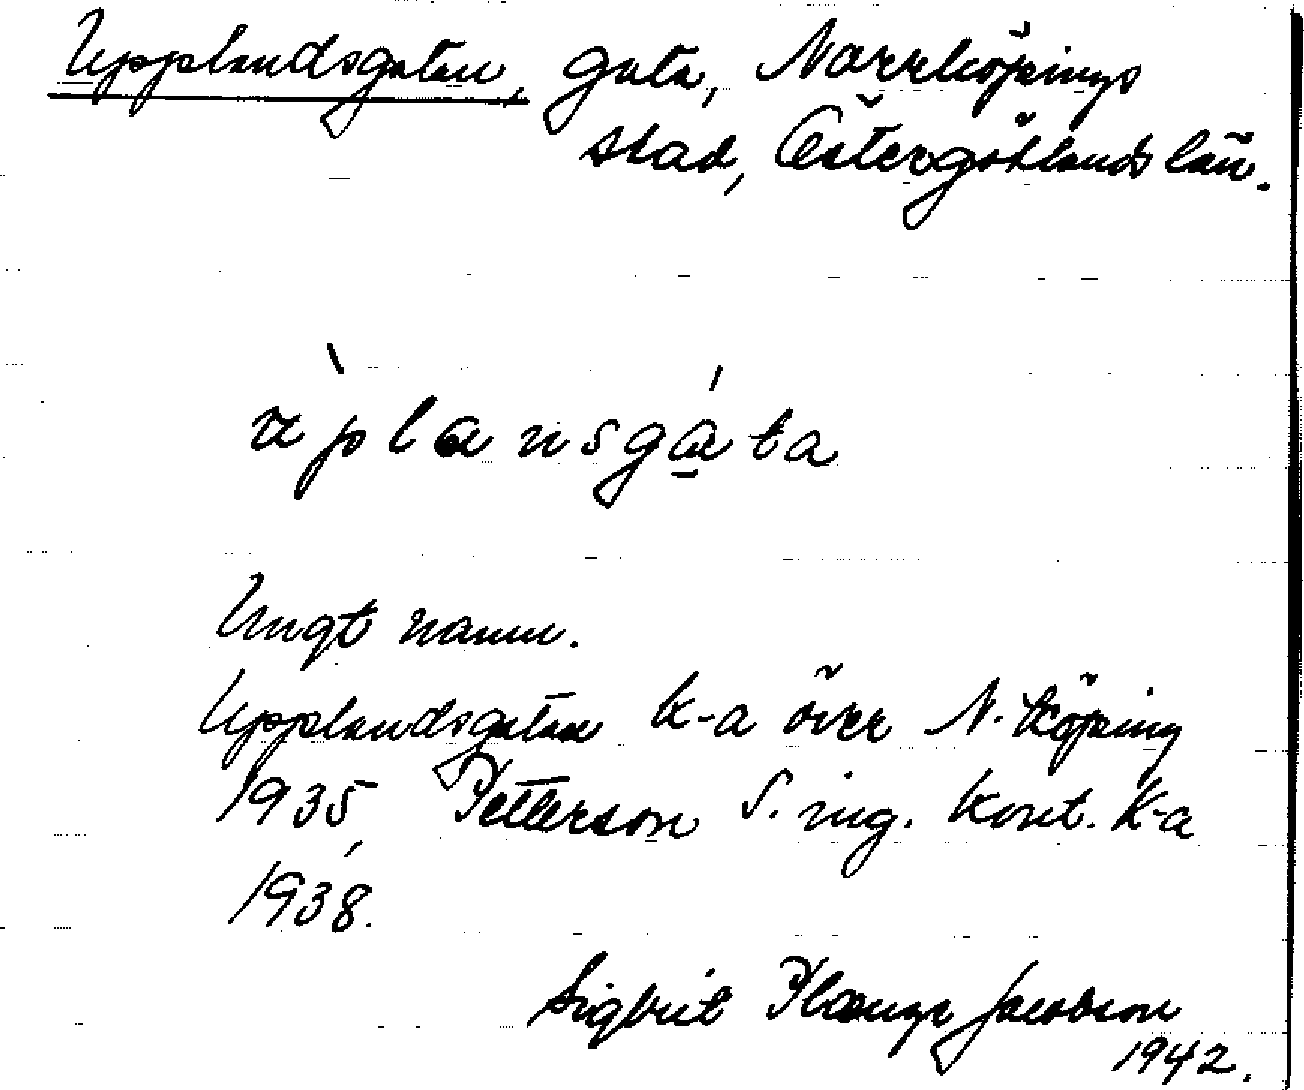 Upplandsgatan, gata, Norrköpings
stad, Östergötlands län.
ùplansgáta
Ungt namn.
Upplandsgatan K-a över N.köping
1935, Petterson S. ing. kont. K-a
1938.
Sigbrit Plænge Jacobson
1942.